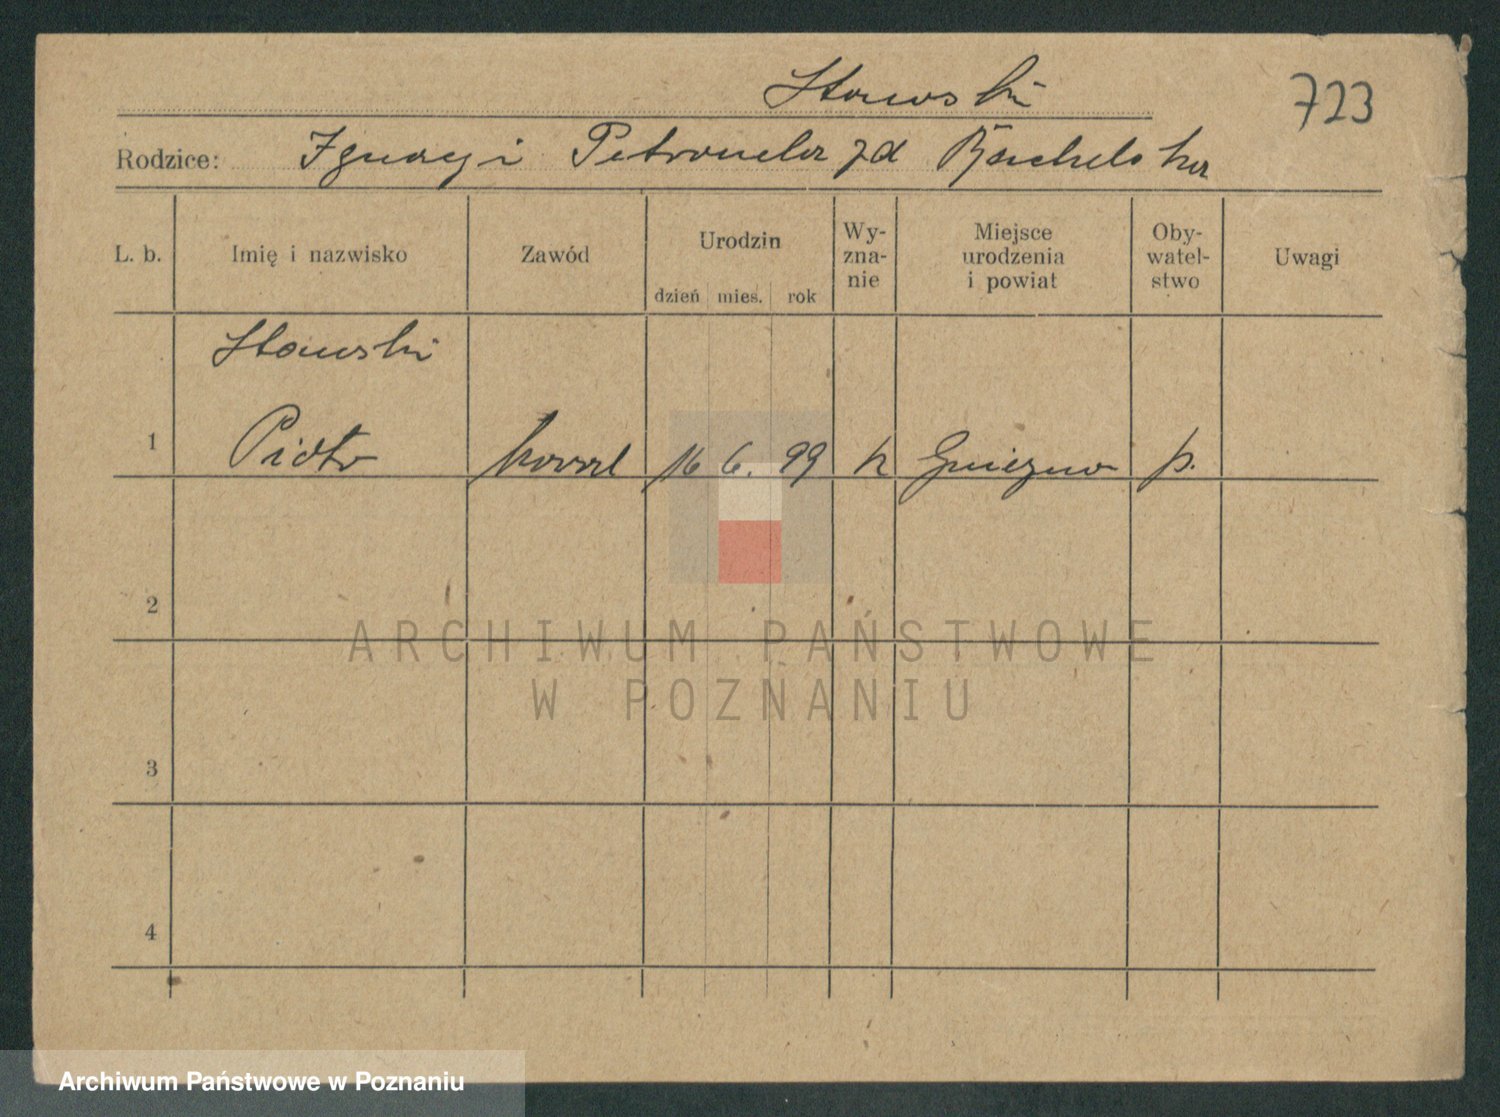 Stawski
723
Rodzice: Ignacy i Petronela zd
L. b. Imię i nazwisko Zawód Urodzin dzień mies. rok Wy-zna-nie Miejsce urodzenia i powiat Oby-watel-stwo Uwagi
Stawski
1 Piotr kowal 16 6. 99 k Gniezno p.
2
ARCHIWUM PAŃSTWOWE
W POZNANIU
3
4
Archiwum Państwowe w Poznaniu